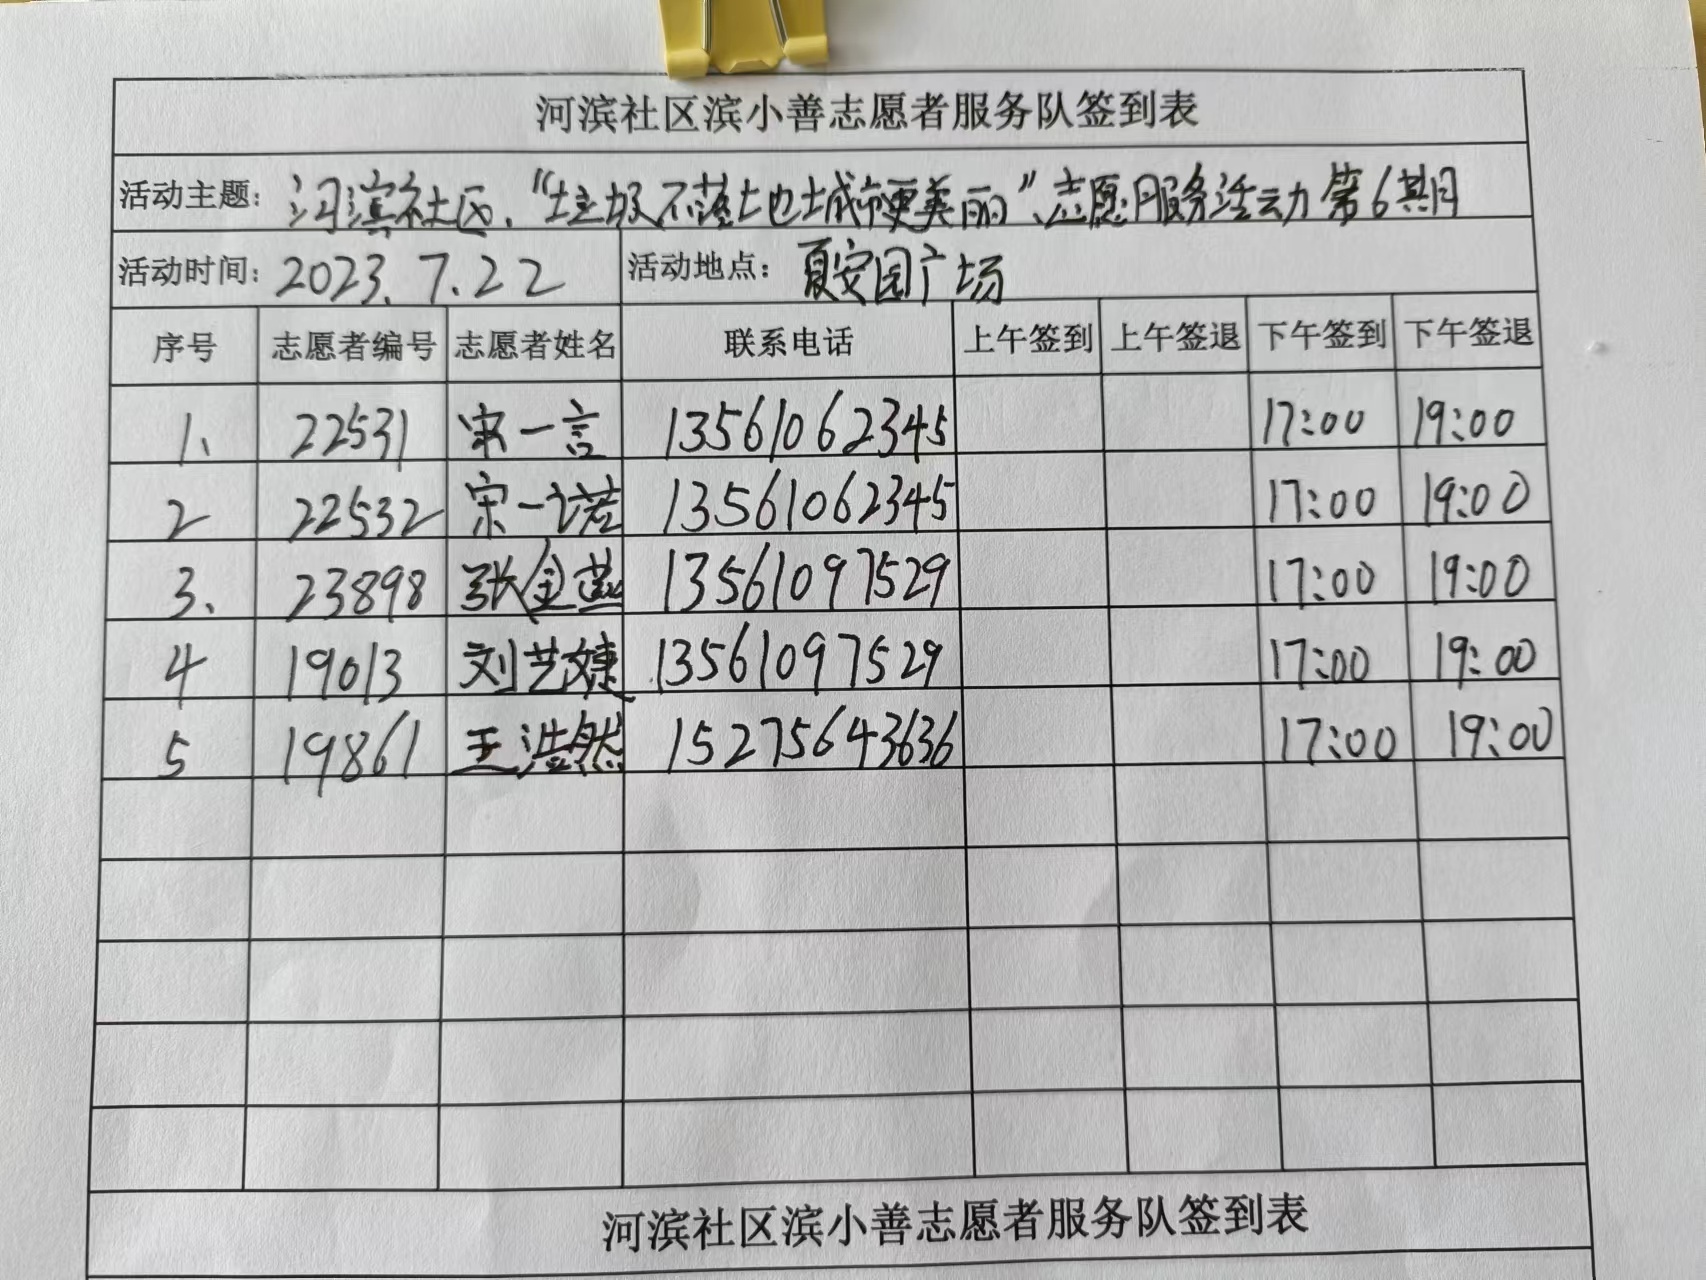 河滨社区滨小善志愿者服务队签到表
活动主题：河滨社区、“垃圾不落地城市更美丽”、志愿服务活动第6期
活动时间：2023.7.22 活动地点：夏安园广场
序号 志愿者编号 志愿者姓名 联系电话 上午签到 上午签退 下午签到 下午签退
1、 22531 宋一言 13561062345 17:00 19:00
2 22532 宋一诺 13561062345 17:00 19:00
3、 23898 张金燕 13561097529 17:00 19:00
4 19013 刘艺婕 13561097529 17:00 19:00
5 19861 王浩然 15275643636 17:00 19:00
河滨社区滨小善志愿者服务队签到表